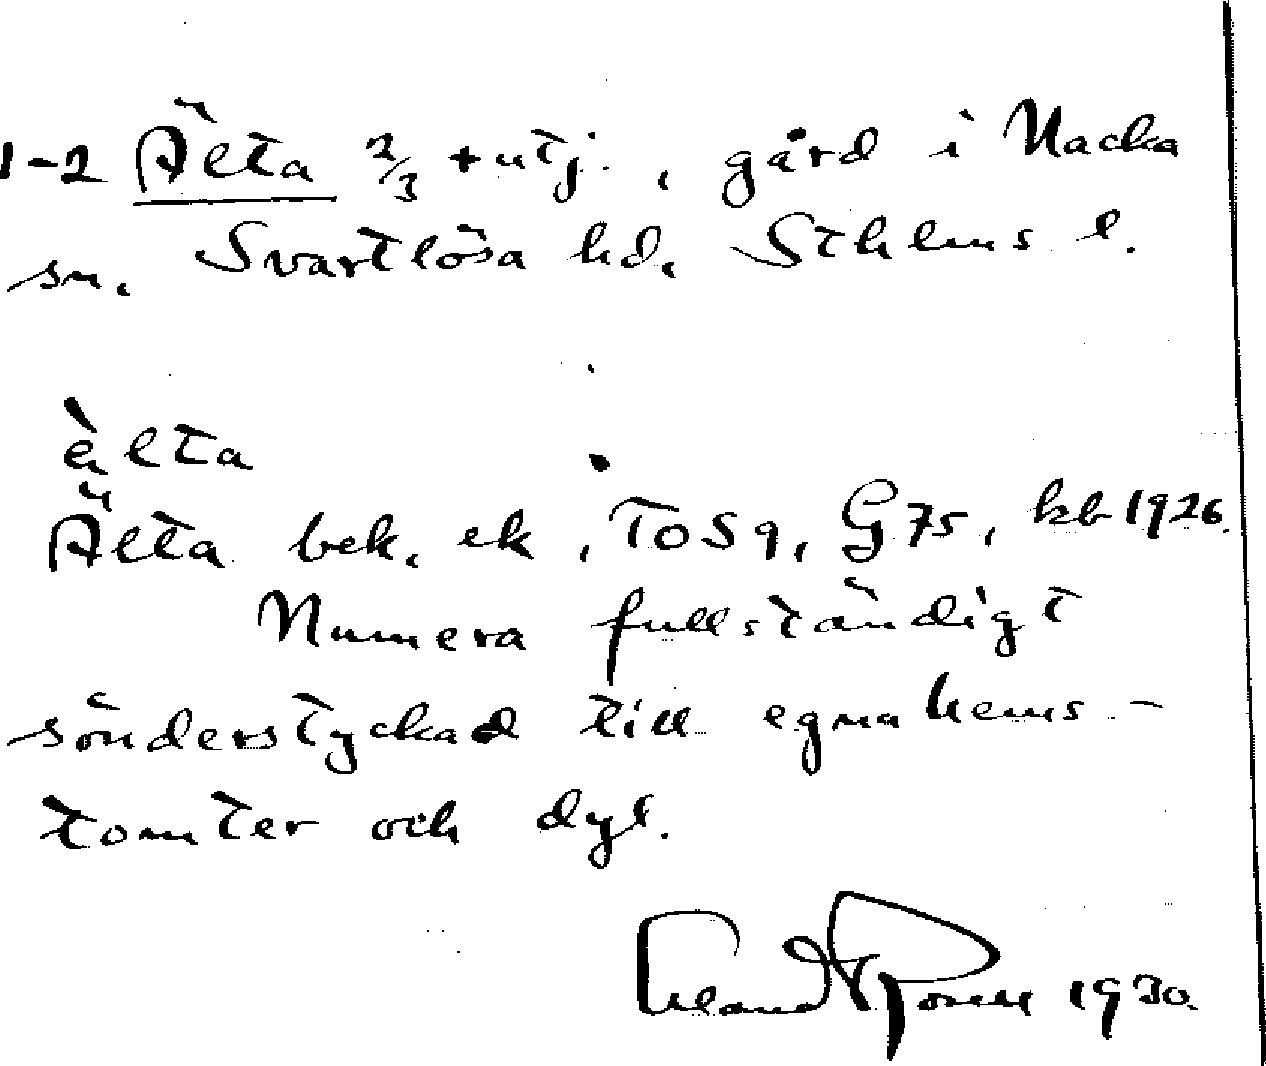 1-2 Älta 2/3 + utj., gård i Nacka
sn. Svartlösa hd. Sthlms l.
älta
Älta bek. ek, ToS 9, G 75, kb 1926.
Numera fullständigt
sönderstyckad till egnahems-
tomter och dyl.
1930.